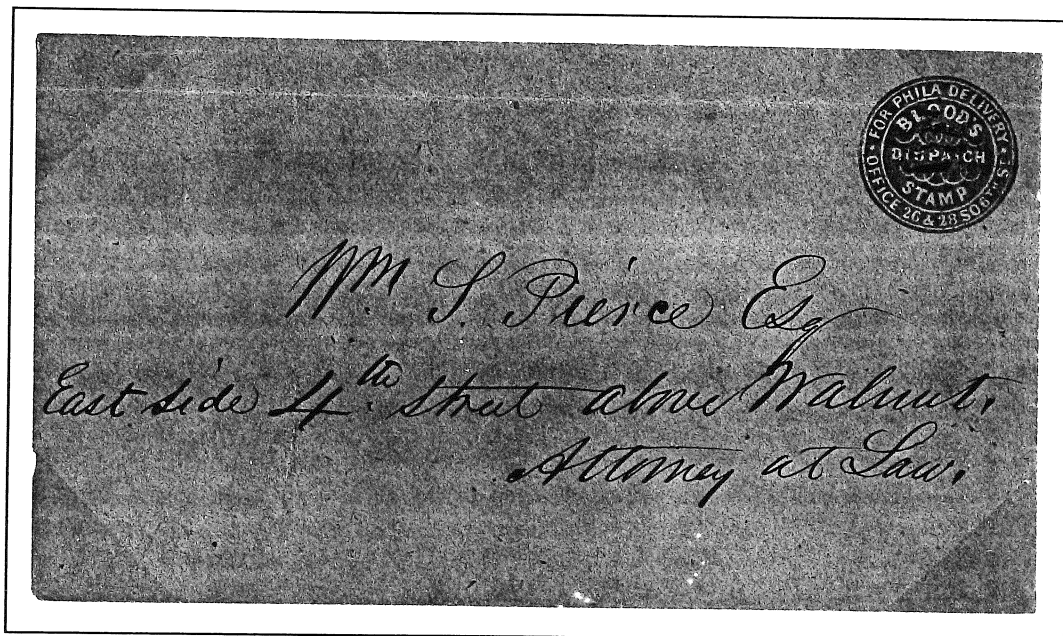 FOR PHILA DELIVERY
BLOOD'S
DISPATCH
STAMP
OFFICE 26 & 28 SO 6TH ST
Wm. S. Pierce Esq
East side 4th. Street above Walnut.
Attorney at Law.